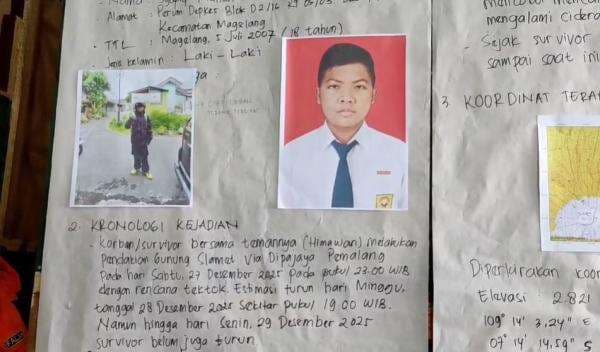 Alamat : Perum Depkes Blok D2/16
Kecamatan Magelang
- TTL : Magelang, 5 Juli 2007 / (18 tahun)
Jenis kelamin : Laki - Laki
2. KRONOLOGI KEJADIAN
- Korban/survivor bersama temannya (Himawan) melakukan
Pendakian Gunung Slamet via Dipajaya Pemalang
Pada hari Sabtu, 27 Desember 2025 pada pukul 23.00 WIB
dengan rencana tektok. Estimasi turun hari Minggu,
tanggal 28 Desember 2025 sekitar pukul 19.00 WIB.
Namun hingga hari Senin, 29 Desember 2025
survivor belum juga turun
mengalami cidera
- Sejak survivor
sampai saat ini
3. KOORDINAT
Diperkirakan
Elevasi : 2.821
109° 14' 3,24" E
07° 14' 14,59" S